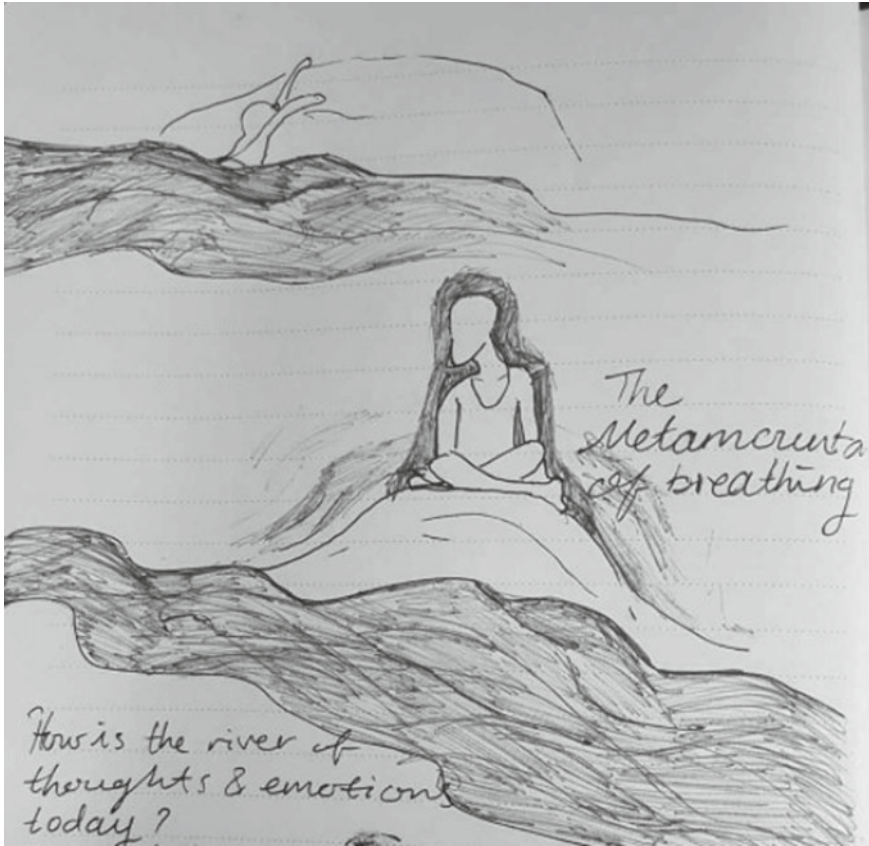 The
of breathing
How is the river of
thoughts & emotions
today?